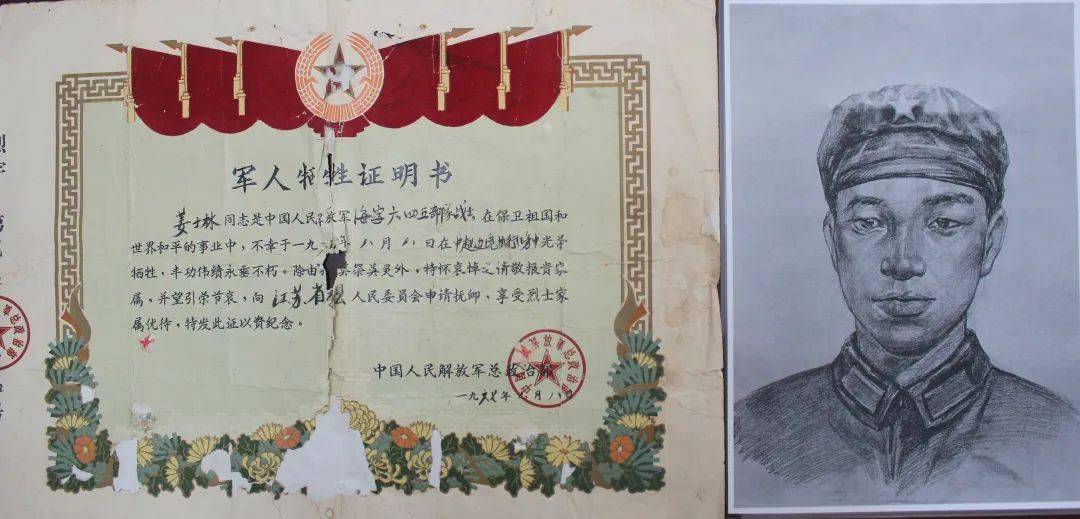 烈字 第
军人牺牲证明书
姜士林同志是中国人民解放军海字六四五部队战士 在保卫祖国和
世界和平的事业中，不幸于一九 年 八月 日在 光荣
牺牲，丰功伟绩永垂不朽。除由 奠祭英灵外，特怀哀悼之请敬报贵家
属，并望引荣节哀，向 江苏省 人民委员会申请抚恤，享受烈士家
属优待，特发此证以资纪念。
中国人民解放军总政治部
中国人民解放军总政治部
一九六七年 月 日